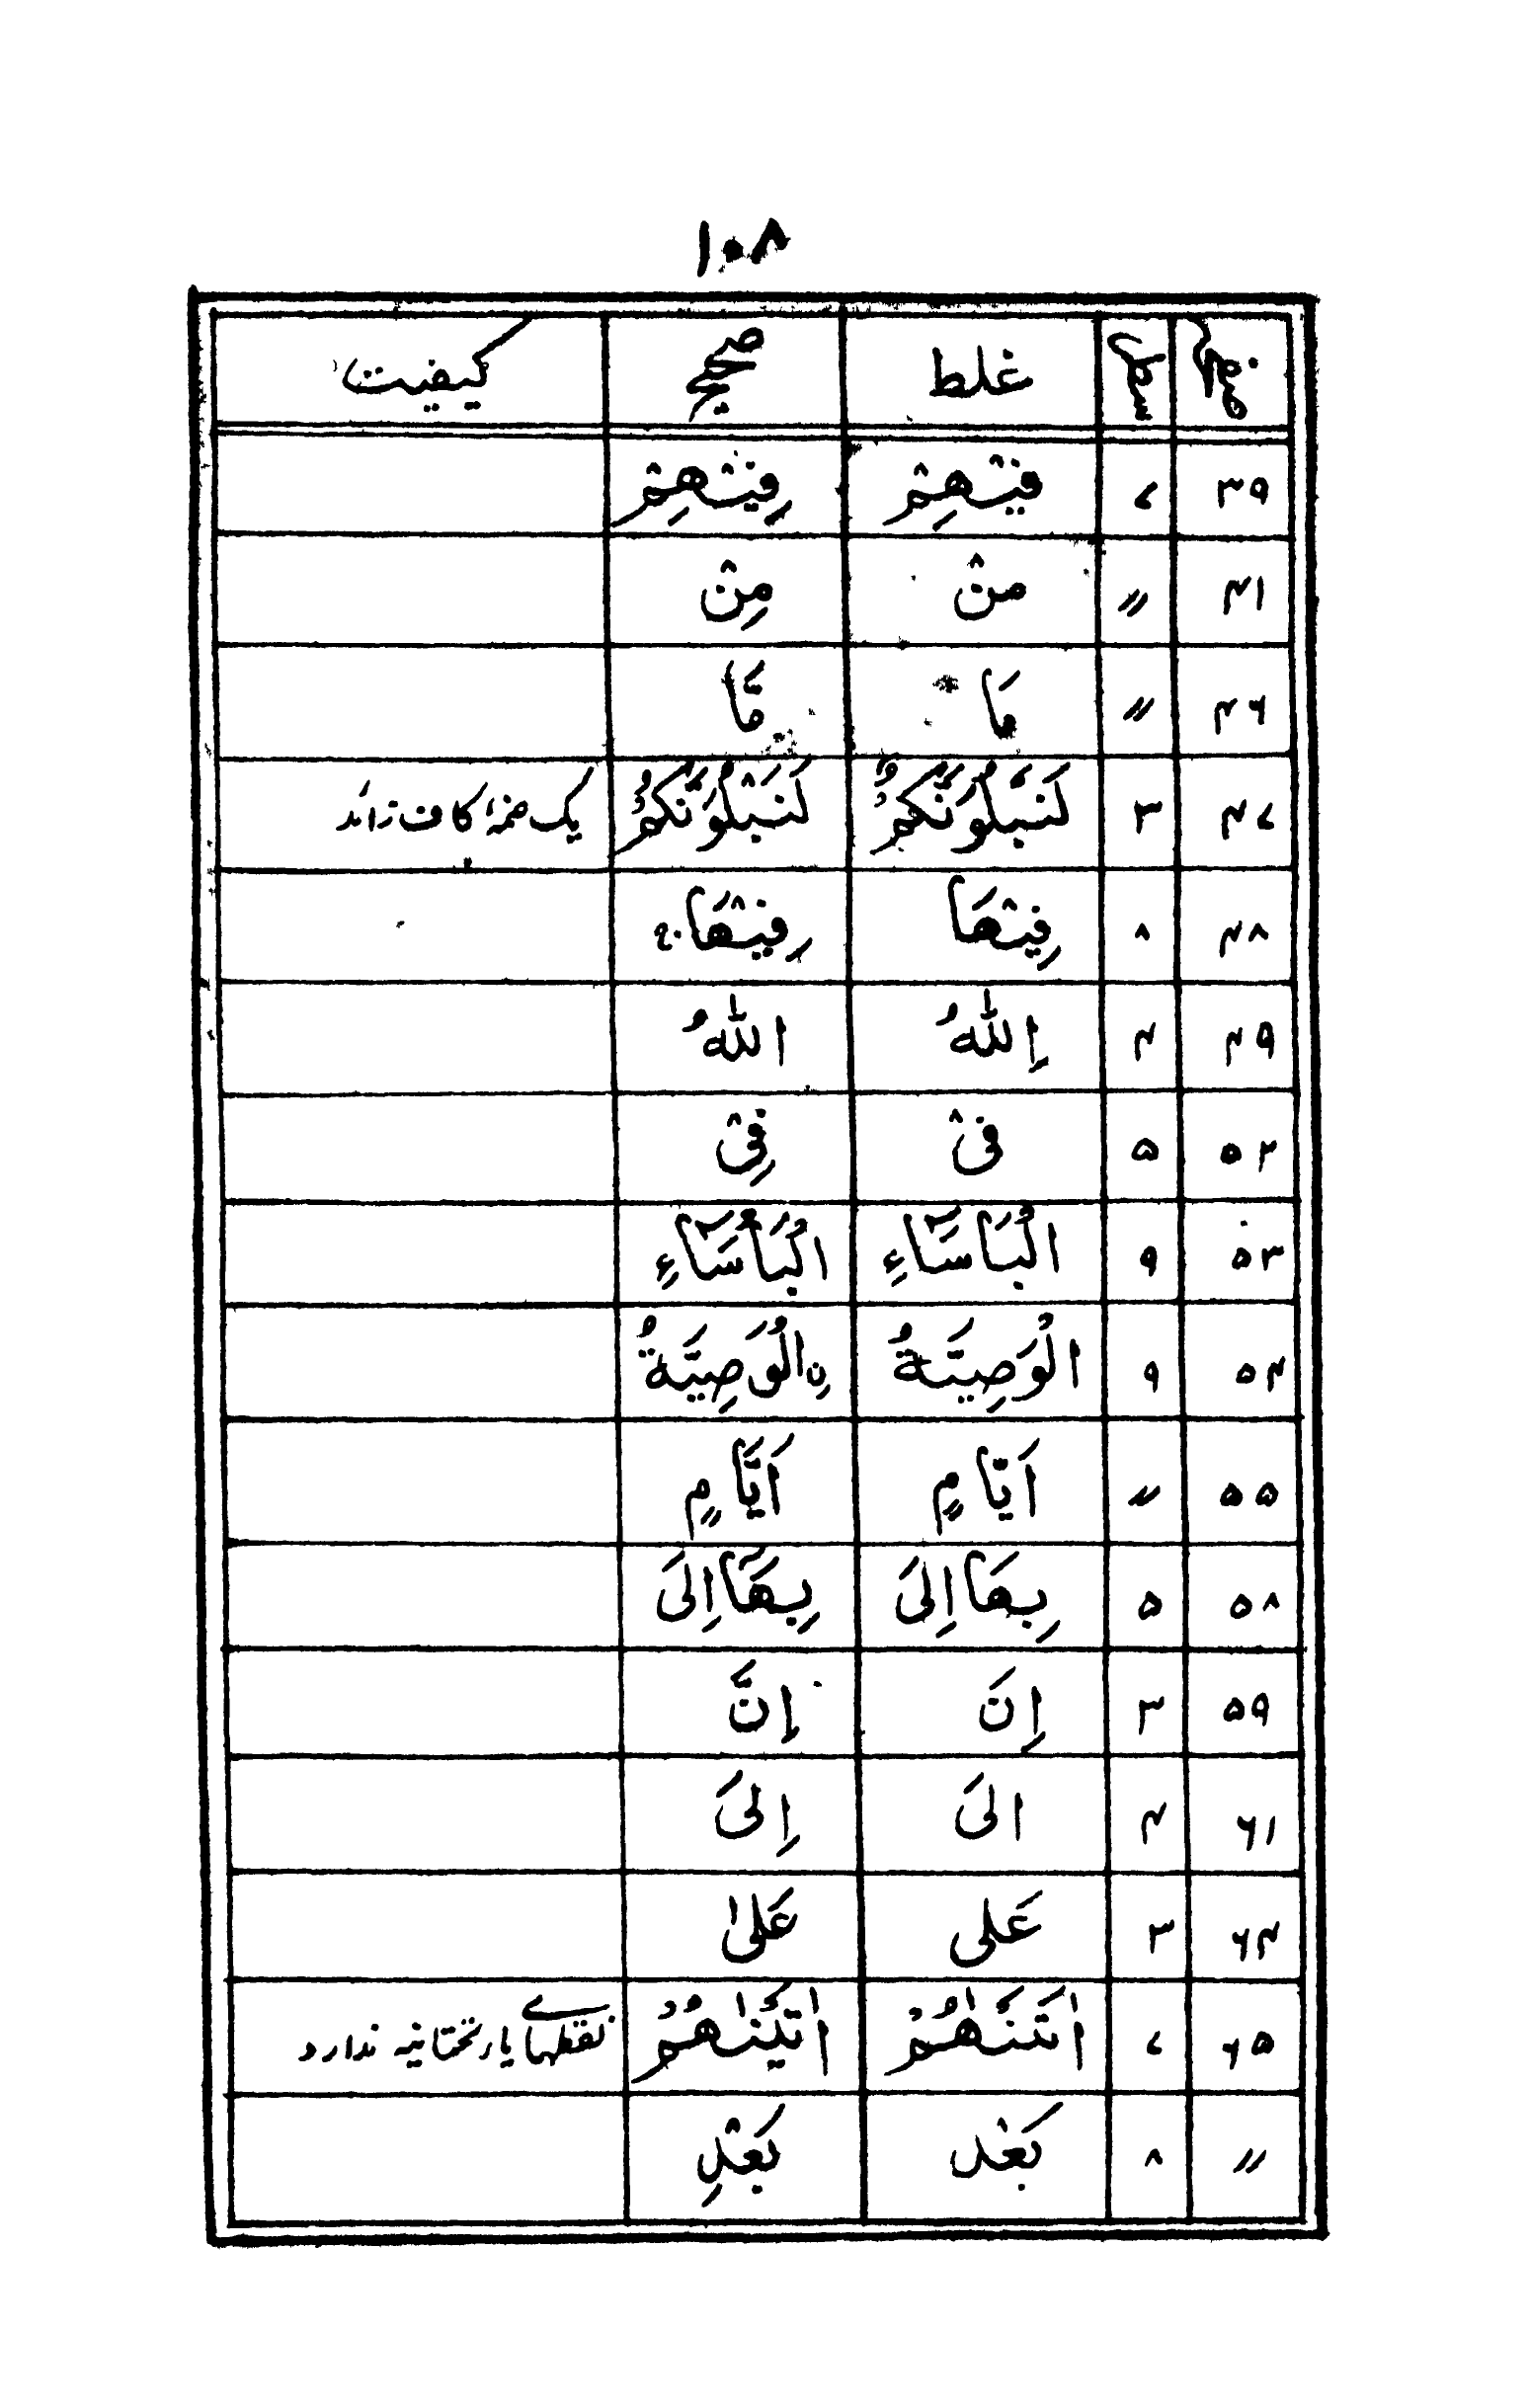 ۱۰۸
صفحه سطر غلط صحیح کیفیت
۳۹ ۷ فیْهِمْ فِیْهِمْ
۴۱ // منْ مِنْ
۴۶ // مَا مَّا
۴۷ ۳ لَنَبَّلُوَنَّكُمُ لَنَبْلُوَنَّكُمُ یک ضمهٔ کاف زائد
۴۸ ۸ فِیْهَا فِیْهَا
۴۹ ۴ اِللّٰهُ اللّٰهُ
۵۲ ۵ فیْ فِیْ
۵۳ ۹ الْبَاسَآءِ الْبَاْسَآءِ
۵۴ ۹ الْوَصِیَّةُ نِ الْوَصِیَّةُ
۵۵ // اَیّامٍ اَیَّامٍ
۵۸ ۵ بِهَا اِلَی بِهَآ اِلَی
۵۹ ۳ اِنَ اِنَّ
۶۱ ۴ الَی اِلَی
۶۴ ۳ عَلی عَلیٰ
۶۵ ۷ اٰتَنَٰهُمْ اٰتَیْنَٰهُمُ نقطهای یاے تحتانیه ندارد
// ۸ بَعْد بَعْدِ